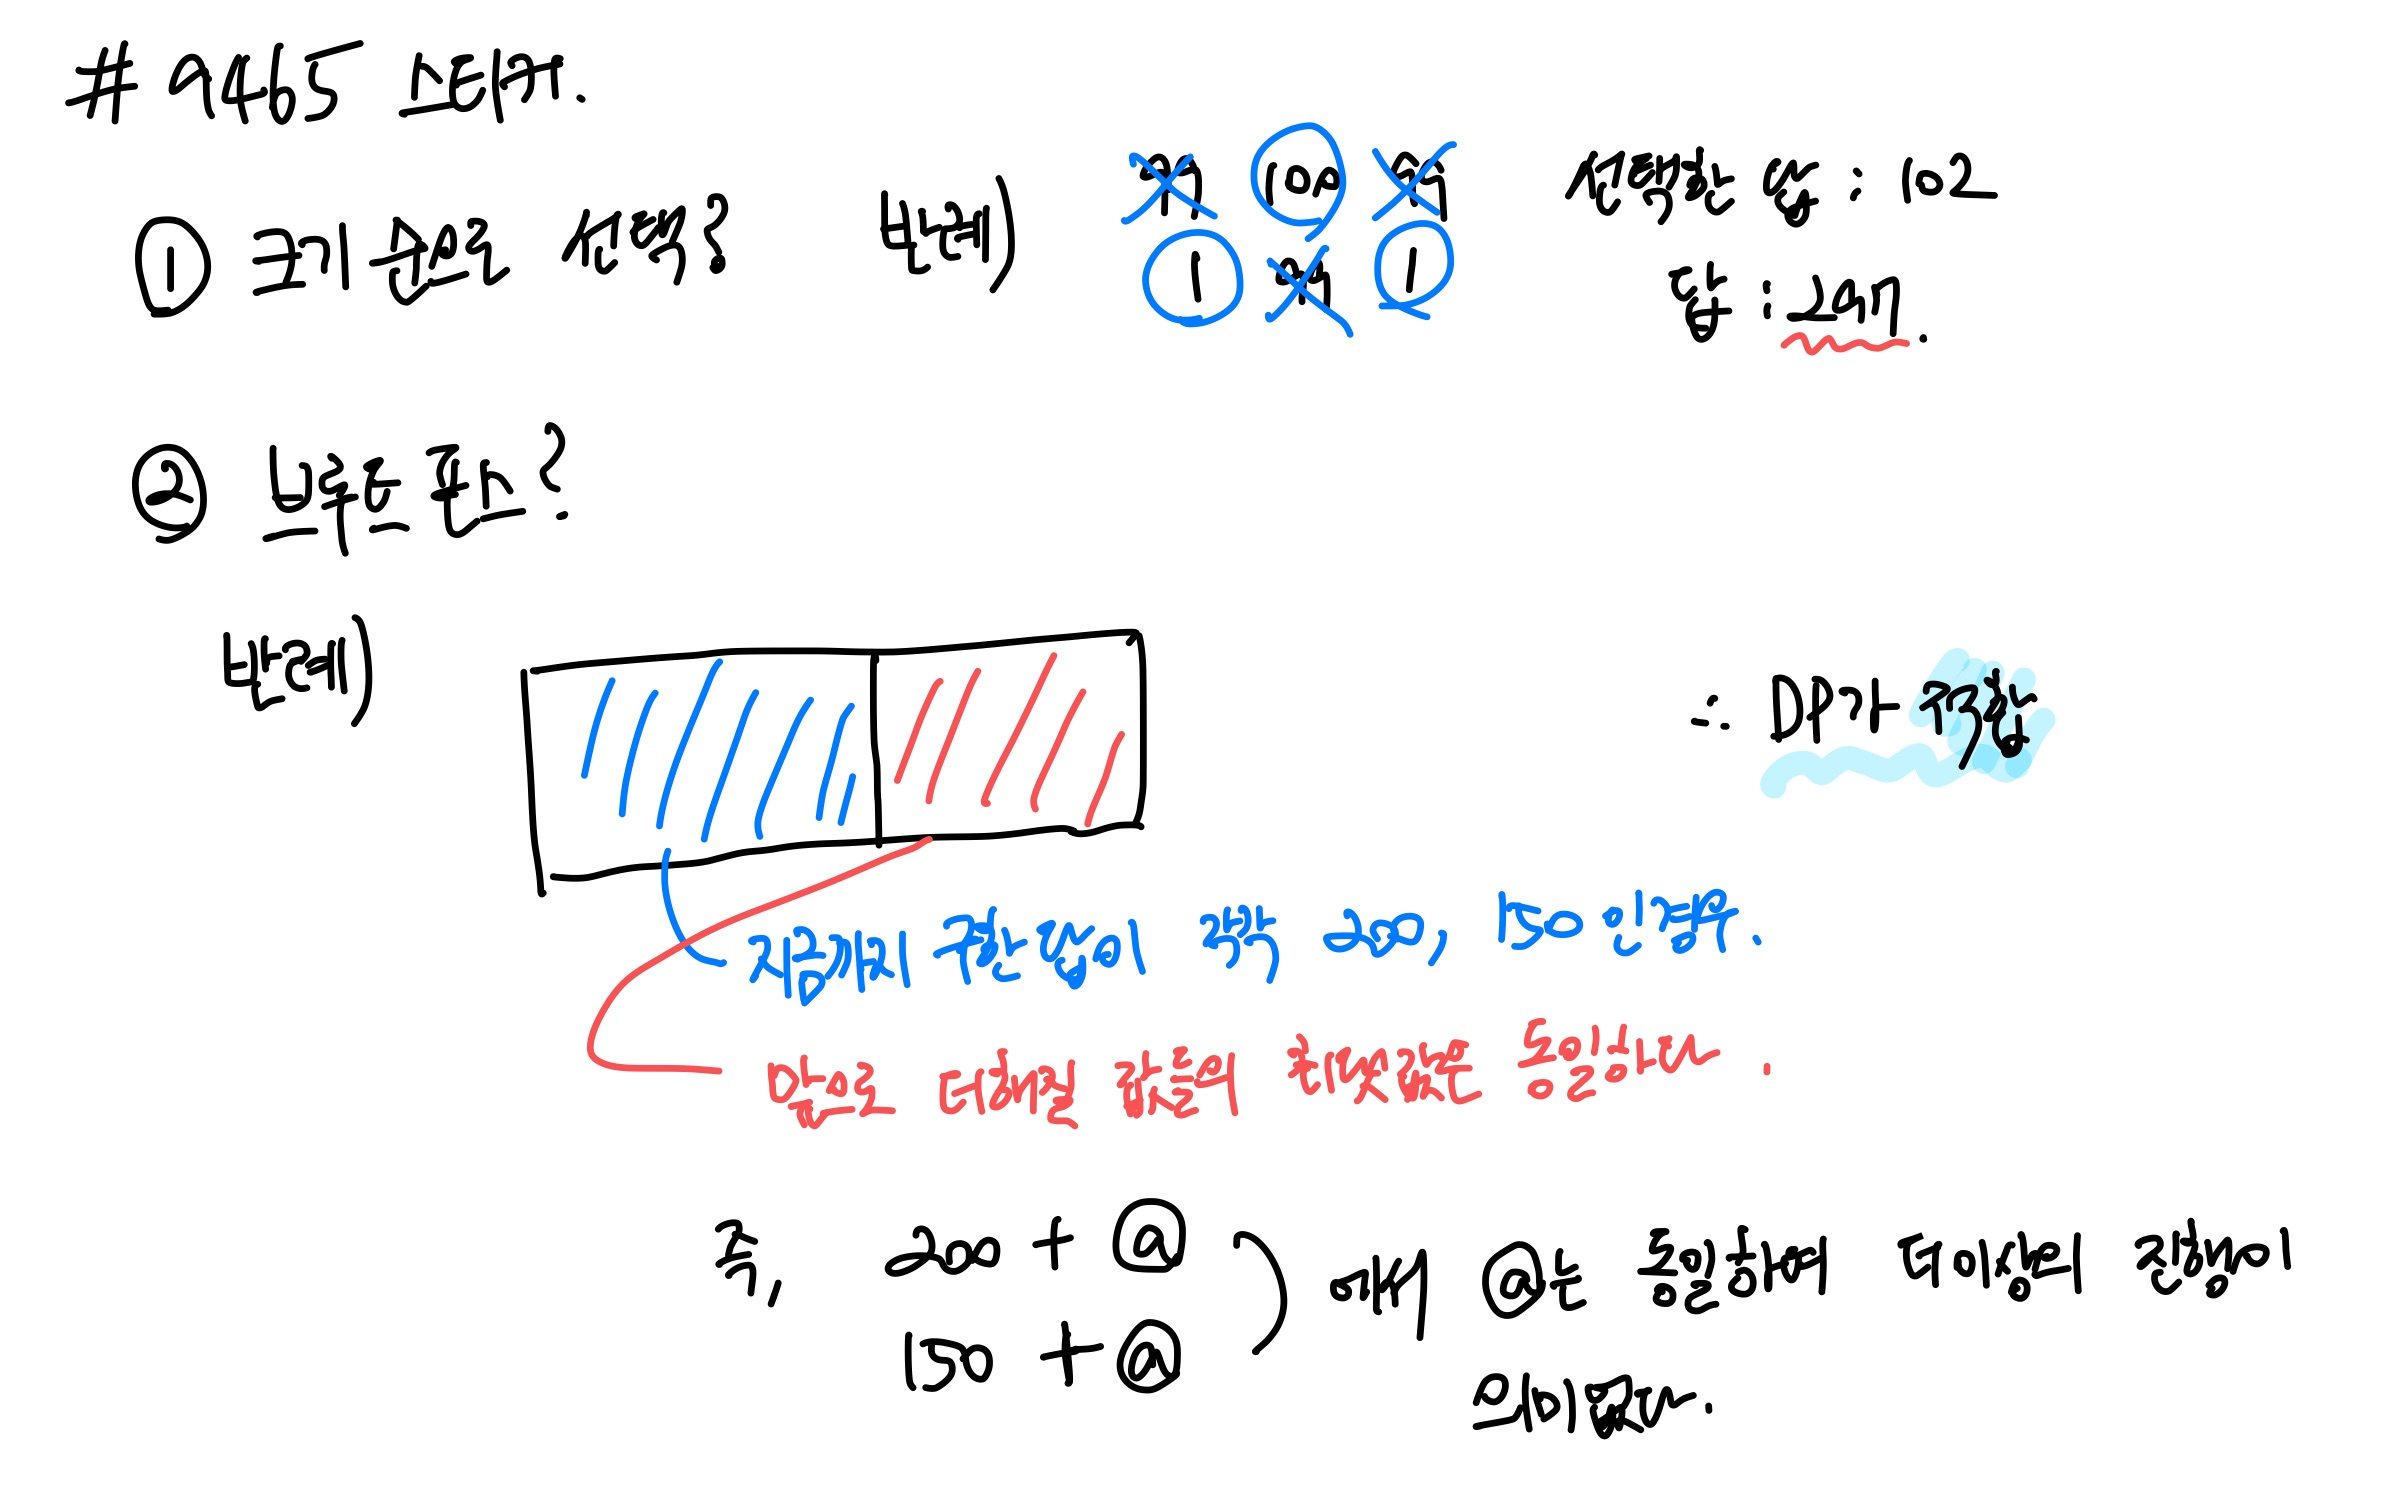 # 9465 스티커.
① 크기 순으로 선택? 반례)
99 100 99
1 99 1
선택한 값 : 102
답 : 297.
② 나누는 풀이?
반례)
∴ DP가 적합
지금까지 구한 값이 각각 200, 150 이라 함.
반으로 더해질 값들의 최댓값은 동일하다.
즉, 200 + ⓐ
150 + ⓐ
에서 ⓐ는 동일하여 더이상의 진행이
의미 없다.